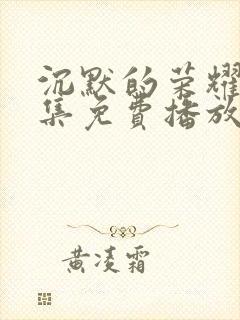 沉默的荣耀
集免费播放
黄凌霜